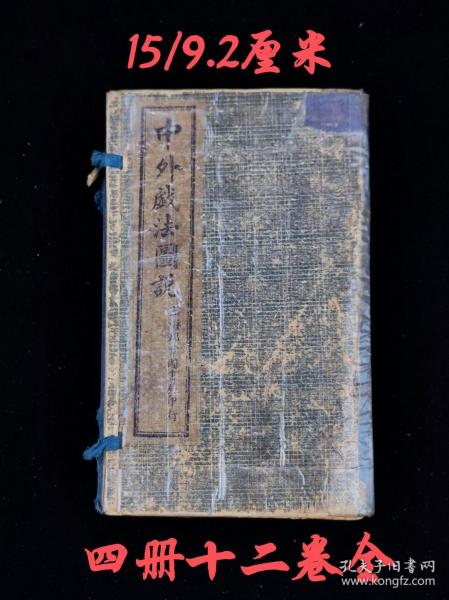 15/9.2厘米
中外戯法圖説
印行
四册十二卷全
孔夫子旧书网
www.kongfz.com